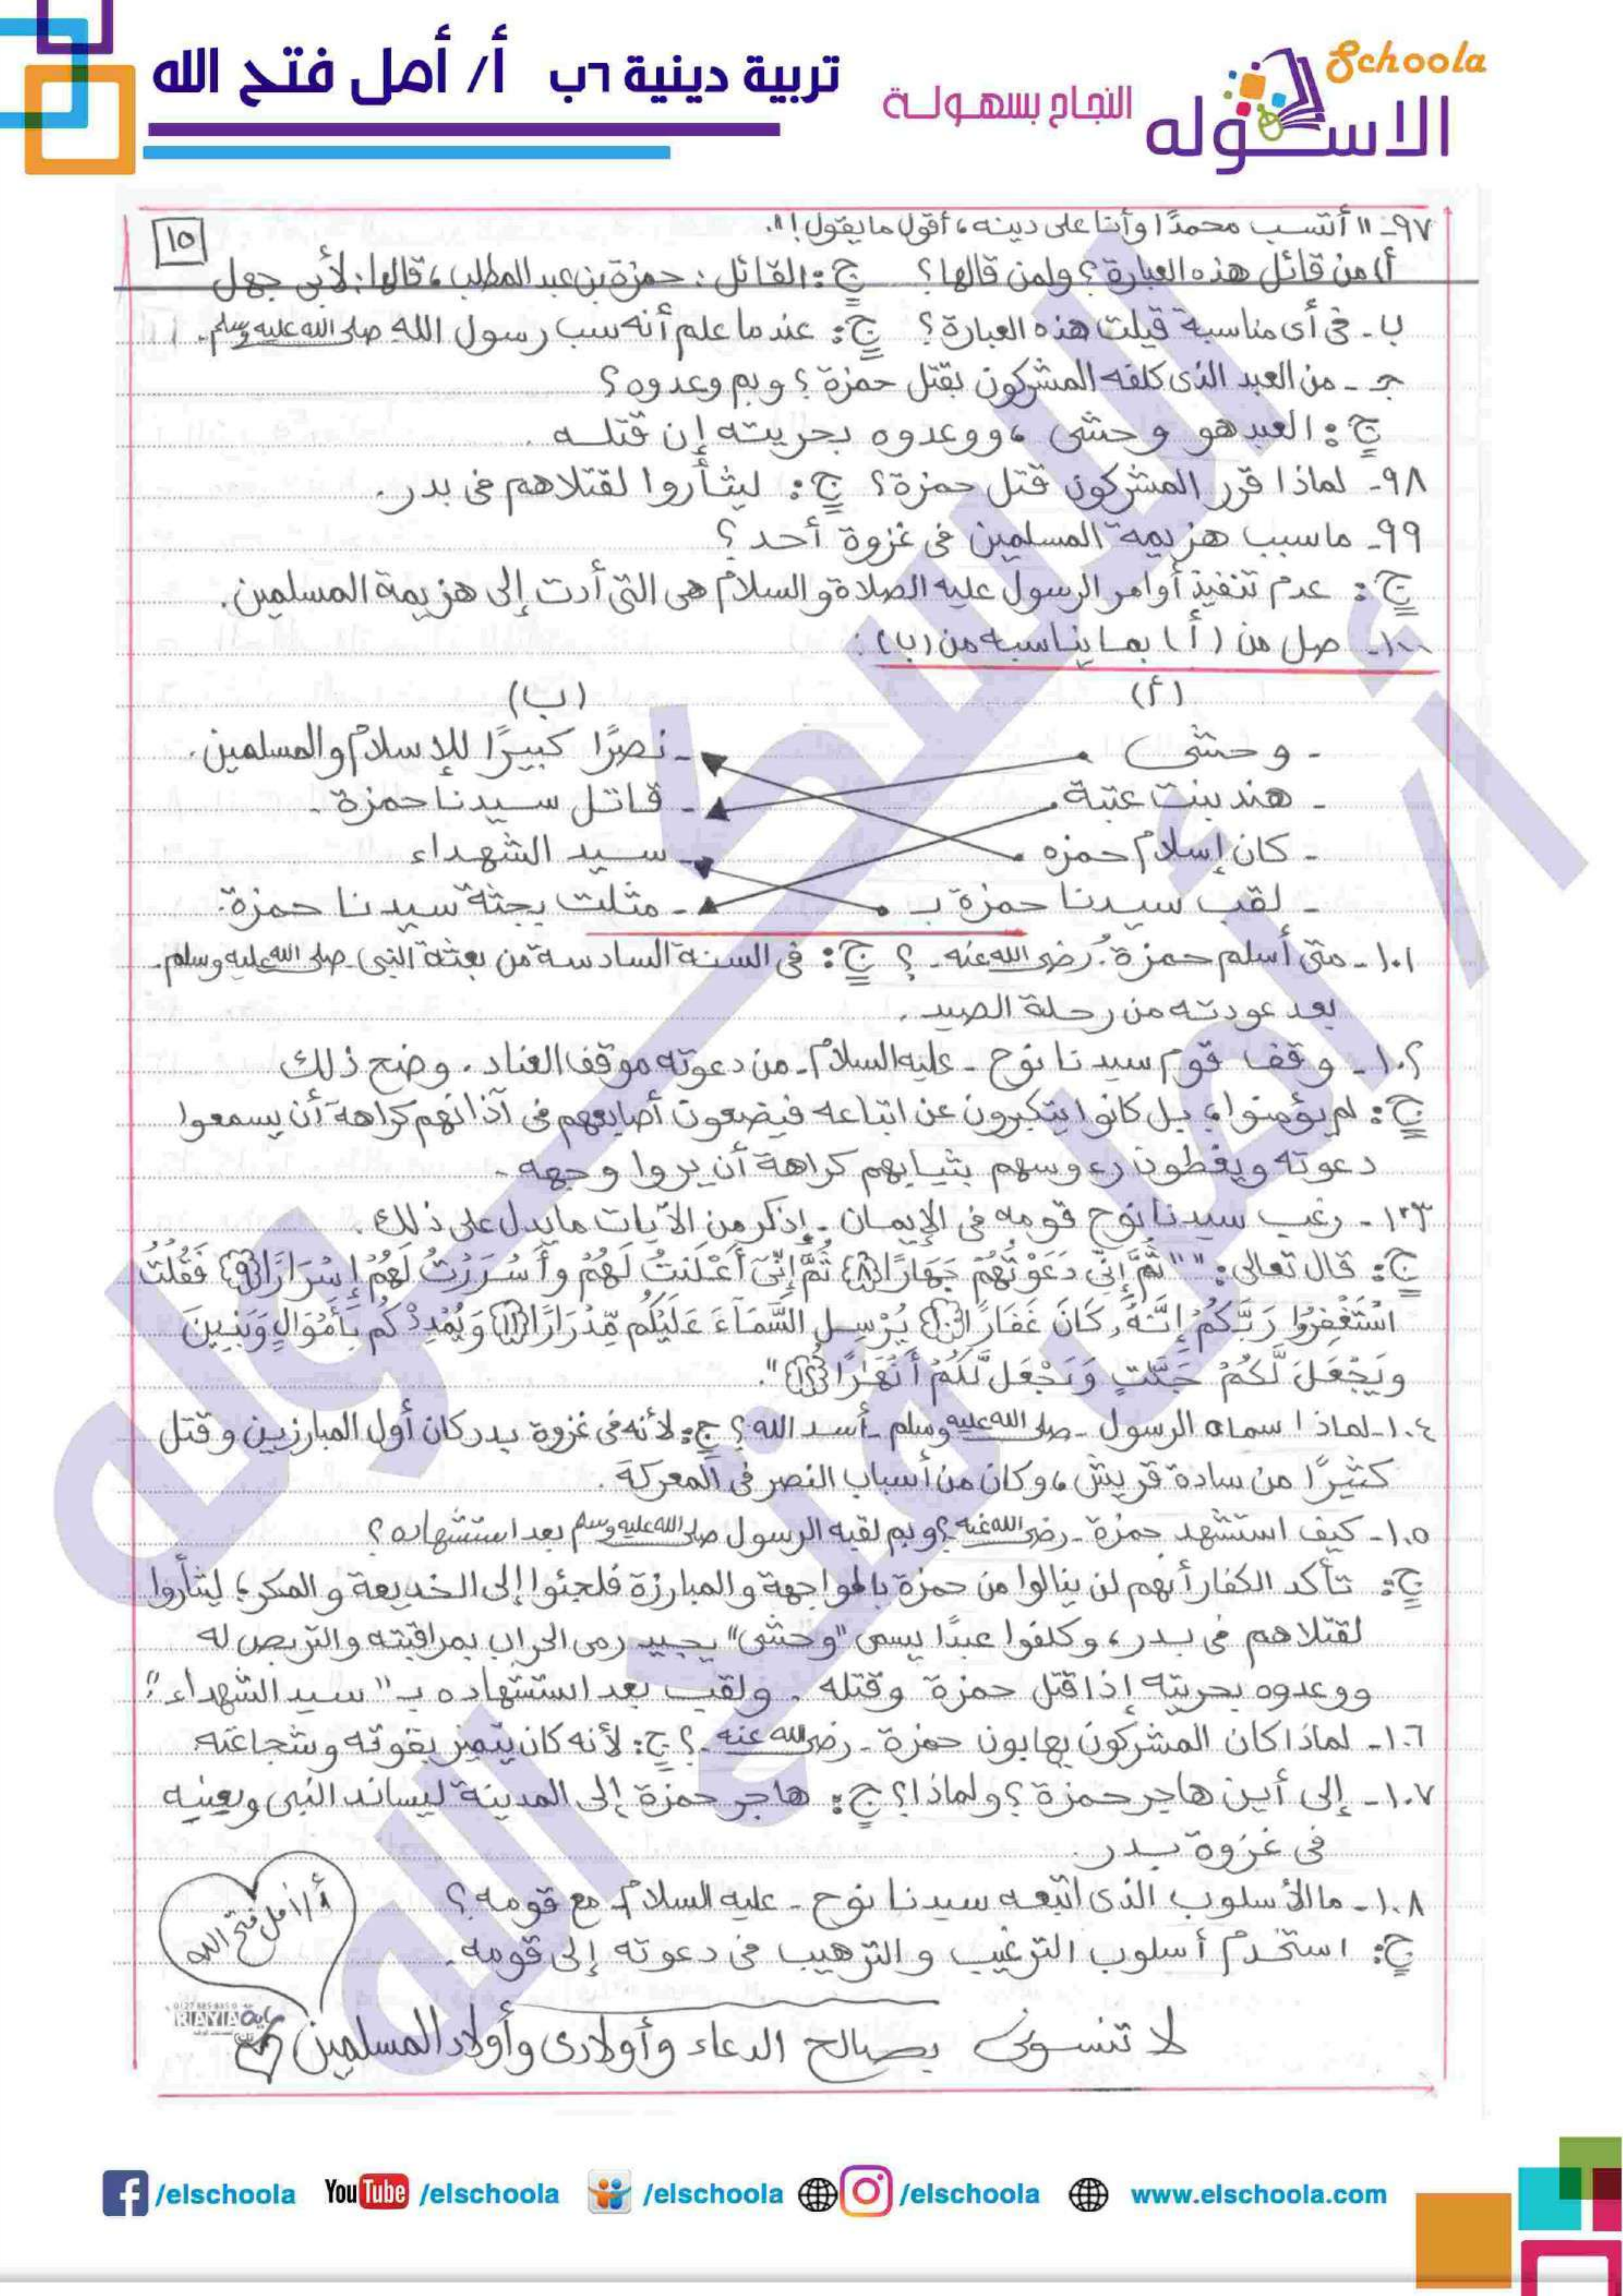 Schoola
الاسكوله
النجاح بسهولة
تربية دينية ٦ب أ/ أمل فتح الله
١٥
٩٧- "أتسب محمدًا وأنا على دينه، أقول ما يقول!".
أ) من قائل هذه العبارة؟ ولمن قالها؟ ج: القائل: حمزة بن عبد المطلب، قالها: لأبى جهل
ب- فى أى مناسبة قيلت هذه العبارة؟ ج: عندما علم أنه سب رسول الله صلى الله عليه وسلم.
جـ - من العبد الذى كلفه المشركون بقتل حمزة؟ وبم وعدوه؟
ج: العبد هو وحشى، ووعدوه بحريته إن قتله.
٩٨- لماذا قرر المشركون قتل حمزة؟ ج: ليثأروا لقتلاهم فى بدر.
٩٩- ماسبب هزيمة المسلمين فى غزوة أحد؟
ج: عدم تنفيذ أوامر الرسول عليه الصلاة والسلام هى التى أدت إلى هزيمة المسلمين.
١٠٠- صل من (أ) بما يناسبه من (ب):
(أ) (ب)
- وحشى - نصرًا كبيرًا للإسلام والمسلمين.
- هند بنت عتبة - قاتل سيدنا حمزة.
- كان إسلام حمزه - سيد الشهداء
- لقب سيدنا حمزة بـ - مثلت بجثة سيدنا حمزة.
١٠١- متى أسلم حمزة- رضى الله عنه-؟ ج: فى السنة السادسة من بعثة النبى- صلى الله عليه وسلم-
بعد عودته من رحلة الصيد.
١٠٢- وقف قوم سيدنا نوح - عليه السلام- من دعوته موقف العناد. وضح ذلك
ج: لم يؤمنوا، بل كانوا يتكبرون عن اتباعه فيضعون أصابعهم فى آذانهم كراهة أن يسمعوا
دعوته ويغطون رءوسهم بثيابهم كراهة أن يروا وجهه.
١٠٣- رغب سيدنا نوح قومه فى الإيمان. إذكر من الآيات ما يدل على ذلك.
ج: قال تعالى: " ثُمَّ إِنِّى دَعَوْتُهُمْ جِهَارًا ﴿٨﴾ ثُمَّ إِنِّىٓ أَعْلَنتُ لَهُمْ وَأَسْرَرْتُ لَهُمْ إِسْرَارًا ﴿٩﴾ فَقُلْتُ
اسْتَغْفِرُوا رَبَّكُمْ إِنَّهُۥ كَانَ غَفَّارًا ﴿١٠﴾ يُرْسِلِ السَّمَآءَ عَلَيْكُم مِّدْرَارًا ﴿١١﴾ وَيُمْدِدْكُم بِأَمْوَالٍ وَبَنِينَ
وَيَجْعَل لَّكُمْ جَنَّٰتٍ وَيَجْعَل لَّكُمْ أَنْهَٰرًا ﴿١٢﴾".
١٠٤- لماذا سماه الرسول - صلى الله عليه وسلم- أسد الله؟ ج: لأنه فى غزوة بدر كان أول المبارزين وقتل
كثيرًا من سادة قريش، وكان من أسباب النصر فى المعركة.
١٠٥- كيف استشهد حمزة - رضى الله عنه؟ وبم لقبه الرسول صلى الله عليه وسلم بعد استشهاده؟
ج: تأكد الكفار أنهم لن ينالوا من حمزة بالمواجهة والمبارزة فلجئوا إلى الخديعة والمكر؛ ليثأروا
لقتلاهم فى بدر، وكلفوا عبدًا يسمى "وحشى" يجيد رمى الحراب بمراقبته والتربص له
ووعدوه بحريته إذا قتل حمزة وقتله. ولقب بعد استشهاده بـ "سيد الشهداء".
١٠٦- لماذا كان المشركون يهابون حمزة - رضى الله عنه-؟ ج: لأنه كان يتميز بقوته وشجاعته
١٠٧- إلى أين هاجر حمزة؟ ولماذا؟ ج: هاجر حمزة إلى المدينة ليساند النبى ويعينه
فى غزوة بدر.
١٠٨- ما الأسلوب الذى اتبعه سيدنا نوح - عليه السلام- مع قومه؟
ج: استخدم أسلوب الترغيب والترهيب فى دعوته إلى قومه.
أ/ أمل فتح الله
لا تنسونى بصالح الدعاء وأولادى وأولاد المسلمين
RAYIA
/elschoola YouTube /elschoola /elschoola /elschoola www.elschoola.com